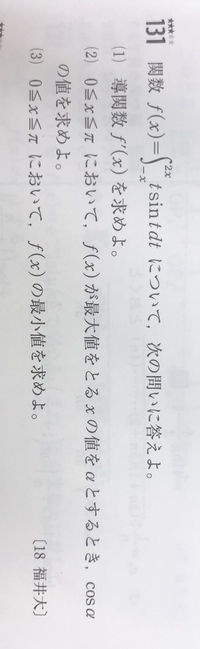 ★★★☆☆
131 関数 f(x)=∫_{-x}^{2x} t sin t dt について，次の問いに答えよ。
(1) 導関数 f′(x) を求めよ。
(2) 0≦x≦π において，f(x) が最大値をとる x の値を α とするとき，cos α
の値を求めよ。
(3) 0≦x≦π において，f(x) の最小値を求めよ。
〔18 福井大〕